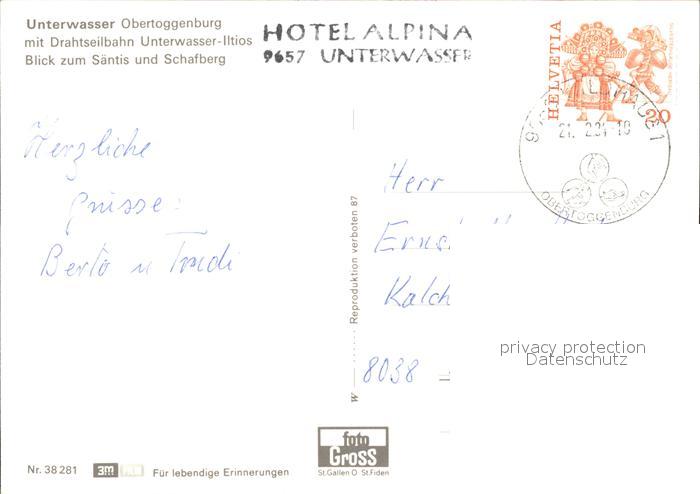 Unterwasser Obertoggenburg
mit Drahtseilbahn Unterwasser-Iltios
Blick zum Säntis und Schafberg
HOTEL ALPINA
9657 UNTERWASSER
HELVETIA
20
OBERTOGGENBURG
Herzliche
grüsse
Berto u Trudi
Herr
Kalch
8038
Reproduktion verboten 87
W
privacy protection
Datenschutz
foto
GROSS
St.Gallen O St.Fiden
Nr. 38 281
3m
Für lebendige Erinnerungen